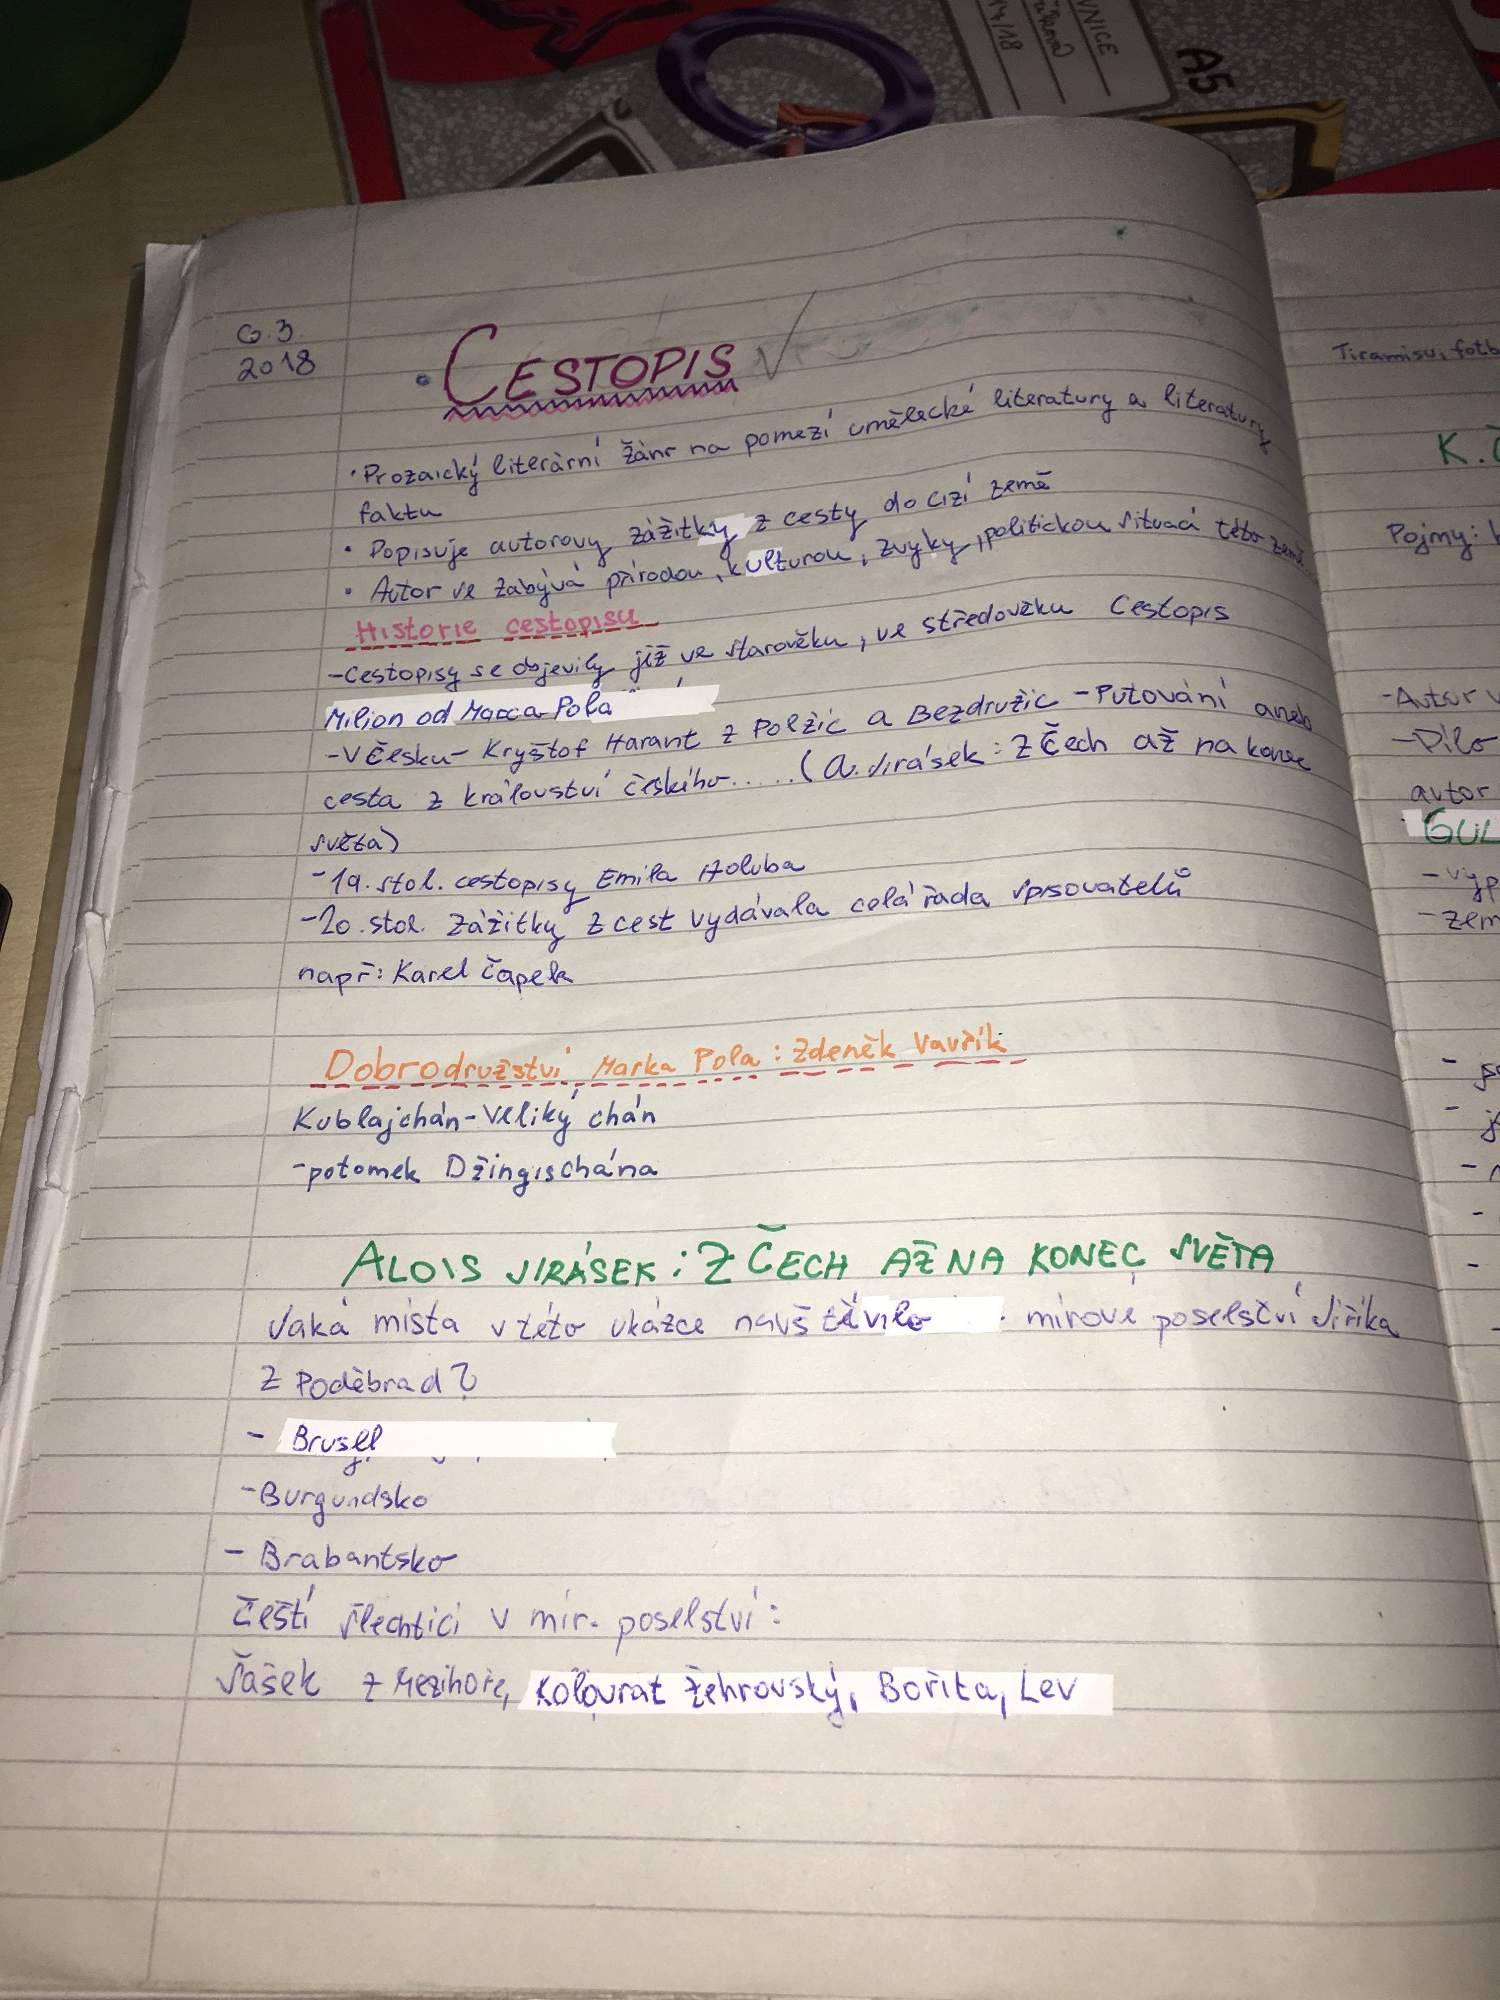 VNICE
A5
6.3.
2018
• CESTOPIS
• Prozaický literární žánr na pomezí umělecké literatury a literatury
faktu
• Popisuje autorovy zážitky z cesty do cizí země
• Autor se zabývá přírodou, kulturou, zvyky, politickou situací této země
Historie cestopisu
- Cestopisy se objevily již ve starověku, ve středověku Cestopis
Milion od Marca Pola
- V Česku - Kryštof Harant z Polžic a Bezdružic - Putování aneb
cesta z království českého..... (A. Jirásek: Z Čech až na konec
světa)
- 19. stol. cestopisy Emila Holuba
- 20. stol. zážitky z cest vydávala celá řada spisovatelů
např: Karel Čapek
Dobrodružství Marka Pola: Zdeněk Vavřík
Kublajchán - Veliký chán
- potomek Džingischána
ALOIS JIRÁSEK: Z ČECH AŽ NA KONEC SVĚTA
Jaká místa v této ukázce navštívilo mírové poselství Jiříka
z Poděbrad?
- Brusel
- Burgundsko
- Brabantsko
Čeští šlechtici v mír. poselství:
Šašek z Mezihoře, Kolovrat Žehrovský, Bořita, Lev
Tiramisu, fotb
K. Č
Pojmy:
- Autor v
- Dílo
autor
GUL
- vyp
- zem